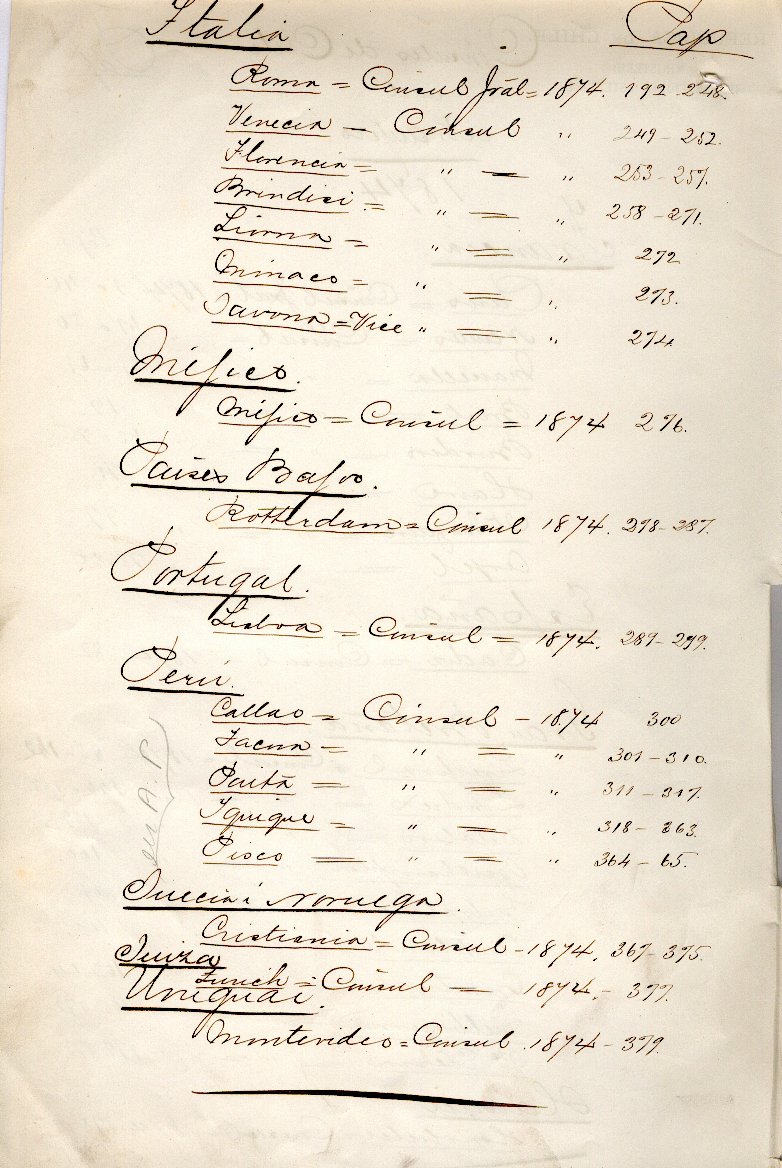 Italia Pap
Roma = Cónsul Jrāl = 1874. 192-248.
Venecia — Cónsul " 249-252.
Florencia = " = " 253-257.
Brindisi = " = " 258-271.
Liorna = " = " 272
Mónaco = " = " 273.
Savona = Vice " = " 274
Méjico.
Méjico = Cónsul = 1874 276.
Países Bajos.
Rotterdam = Cónsul 1874. 278-287.
Portugal.
Lisboa = Cónsul = 1874. 289-299.
Perú.
Callao = Cónsul - 1874 300
Tacna = " = " 301-310.
Paita = " = " 311-317.
Iquique = " = " 318-363.
Pisco = " = " 364-65.
Suecia i Noruega.
Cristiania = Cónsul - 1874. 367-375.
Suiza
Zurich = Cónsul — 1874. - 377.
Uruguai.
Montevideo = Cónsul. 1874 - 379.